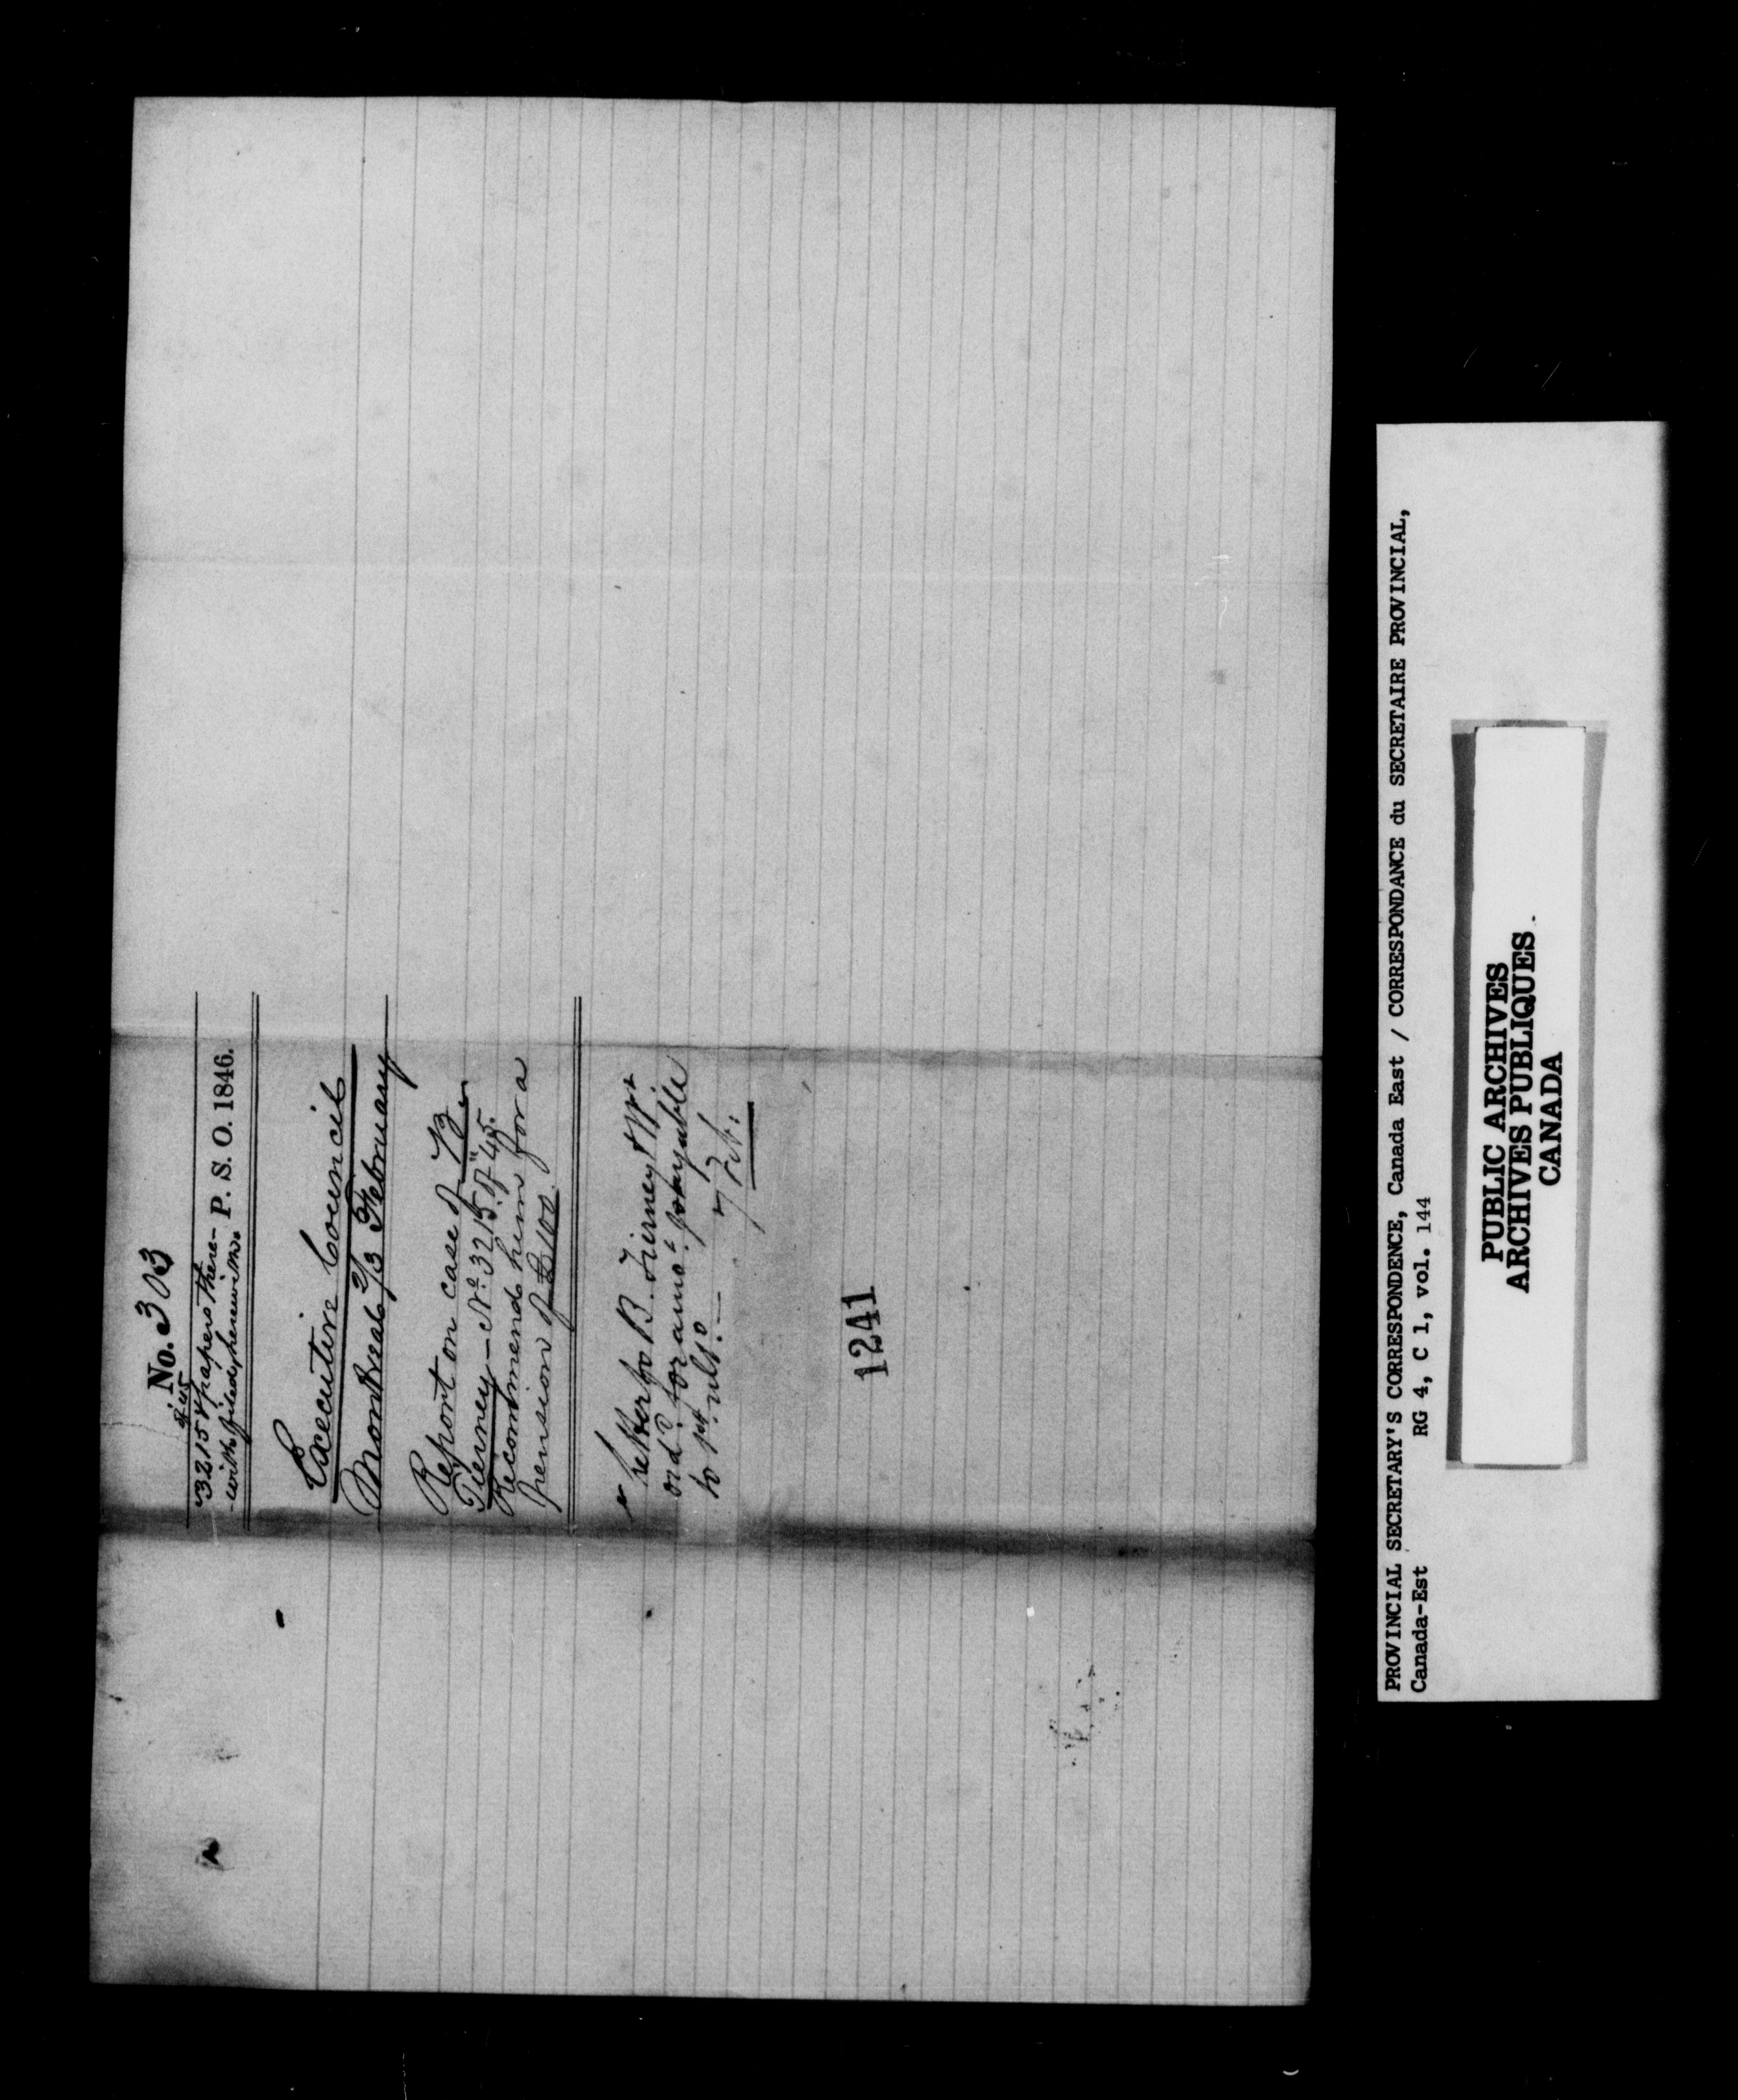 No. 303
of '45
3215 & papers there-
-with filed, herewith. P. S. O. 1846.
Executive Council
Montreal 2/3 February
Report on case of B.
Tierney — No. 3215. of "45.
Recommends him for a
pension of £100.
Letter to B. Tierney & Wt.
ord.d for amo.t payable
to 1st ulto. —
7 Feb:
1241
PROVINCIAL SECRETARY'S CORRESPONDENCE, Canada East / CORRESPONDANCE du SECRETAIRE PROVINCIAL,
Canada-Est RG 4, C 1, vol. 144
PUBLIC ARCHIVES
ARCHIVES PUBLIQUES
CANADA